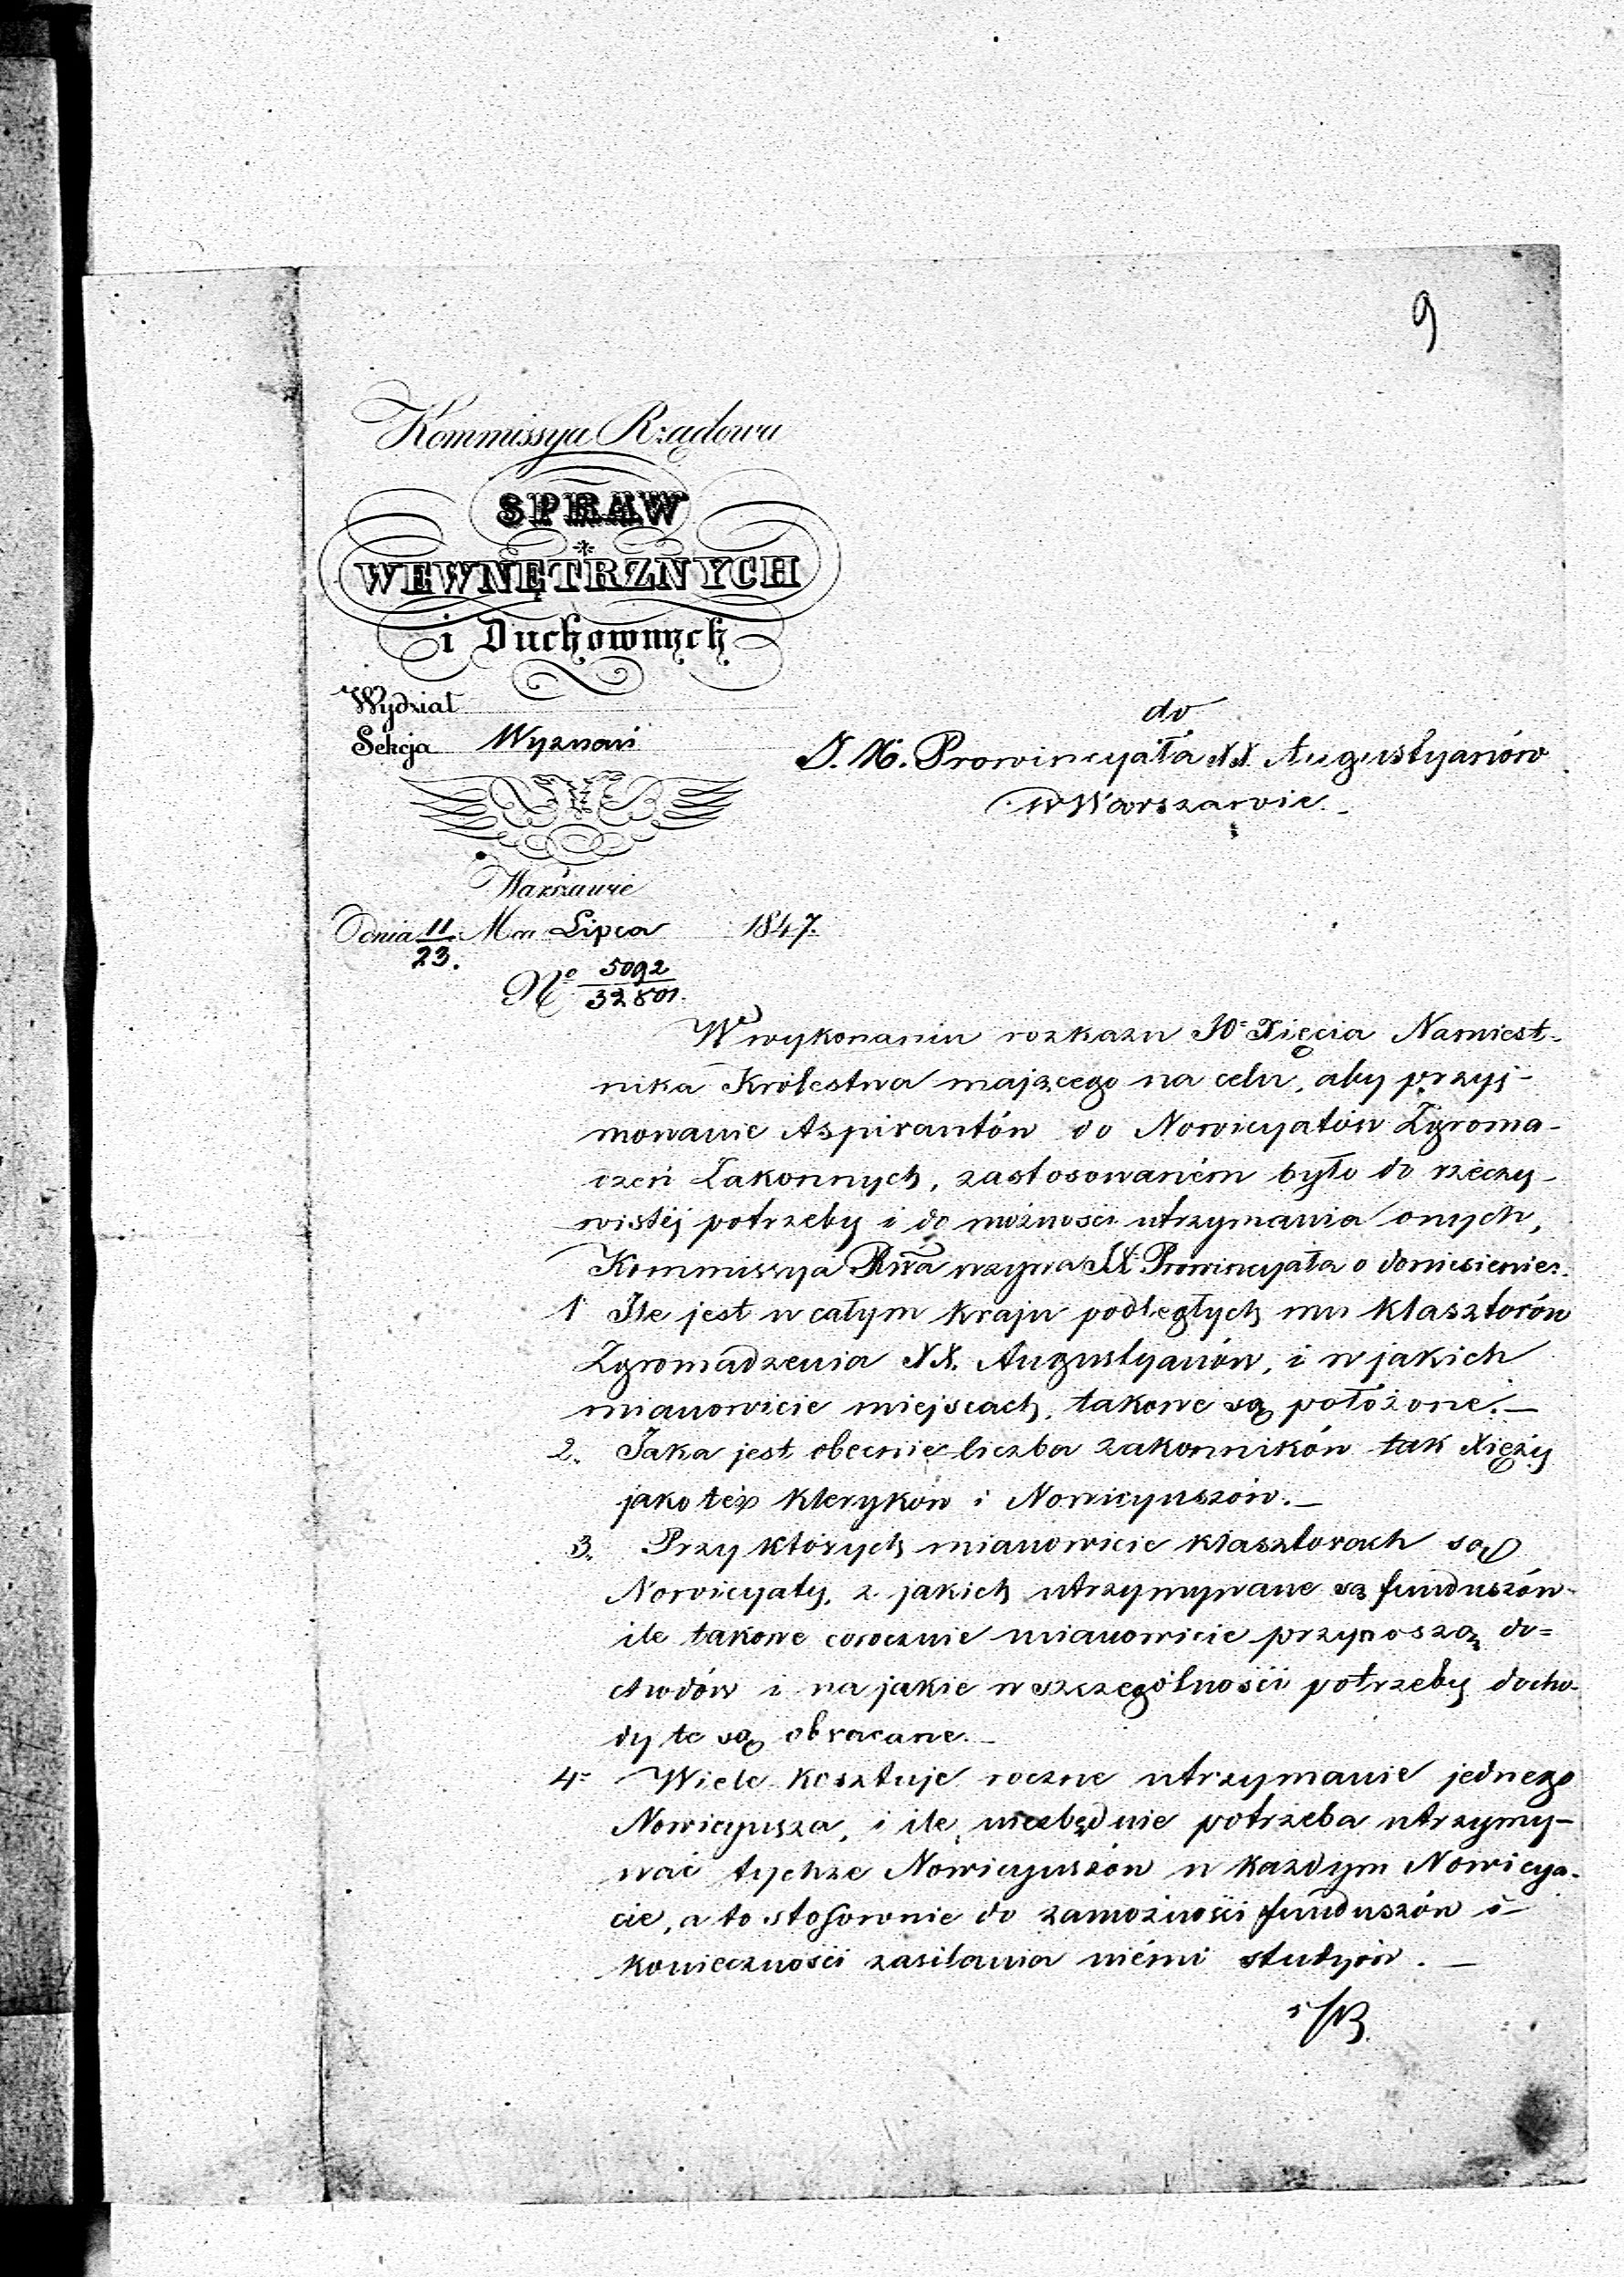 9
Kommissya Rządowa
SPRAW
WEWNĘTRZNYCH
i Duchownych
Wydział
Sekcja Wyznań
do
J. X. Prowincyała XX. Augustyanów
w Warszawie.
Warszawie
dnia 11/23. M ca Lipca 1847.
No 5092/32801.
W wykonaniu rozkazu JO. Xięcia Namiest-
nika Królestwa mającego na celu, aby przyj-
mowanie Aspirantów do Nowicyatów Zgroma-
dzeń Zakonnych, zastosowaném było do rzeczy-
wistéj potrzeby i do możności utrzymania onych,
Kommissya Rwa wzywa JX. Prowincyała o doniesienie:
1 Ile jest w całym kraju podległych mu klasztorów
Zgromadzenia XX. Augustyanów, i w jakich
mianowicie miejscach, takowe są położone. —
2. Jaka jest obecnie liczba zakonników tak Xięży
jako też kleryków i Nowicyuszów. —
3. Przy których mianowicie klasztorach są
Nowicyaty, z jakich utrzymywane są funduszów
ile takowe corocznie mianowicie przynoszą do=
chodów i na jakie w szczególności potrzeby docho-
dy te są obracane. —
4= Wiele kosztuje roczne utrzymanie jednego
Nowicyusza, i ile niezbędnie potrzeba utrzymy-
wać tychże Nowicyuszów w każdym Nowicya-
cie, a to stosownie do zamożności funduszów i
konieczności zasilania niémi studyów. —